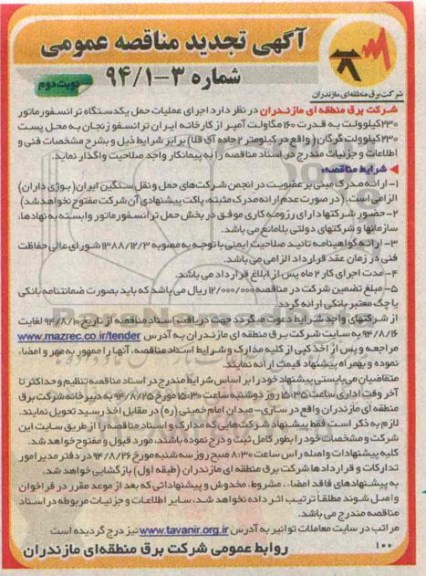 آگهی تجدید مناقصه عمومی
شماره ۳-۹۴/۱
نوبت دوم
شرکت برق منطقه‌ای مازندران
شرکت برق منطقه ای مازندران در نظر دارد اجرای عملیات حمل یکدستگاه ترانسفورماتور
۲۳۰ کیلوولت به قدرت ۱۶۰ مگاولت آمپر از کارخانه ایران ترانسفو زنجان به محل پست
۲۳۰ کیلوولت گرگان (واقع در کیلومتر ۲ جاده آق قلا) برابر شرایط ذیل و بشرح مشخصات فنی و
اطلاعات و جزئیات مندرج در اسناد مناقصه را به پیمانکار واجد صلاحیت واگذار نماید.
شرایط مناقصه:
۱- ارائه مدرک مبنی بر عضویت در انجمن شرکت‌های حمل و نقل سنگین ایران (بوژی داران)
الزامی است. (در صورت عدم ارائه مدرک مثبته، پاکت پیشنهادی آن شرکت مفتوح نخواهد شد)
۲- حضور شرکتها دارای رزومه کاری موفق در بخش حمل ترانسفورماتور وابسته به نهادها،
سازمانها و شرکتهای دولتی بلامانع می باشد.
۳- ارائه گواهینامه تائید صلاحیت ایمنی با توجه به مصوبه ۱۳۸۸/۱۲/۳ شورای عالی حفاظت
فنی در زمان عقد قرارداد الزامی می باشد.
۴- مدت اجرای کار ۲ ماه پس از ابلاغ قرارداد می باشد.
۵- مبلغ تضمین شرکت در مناقصه ۱۲/۰۰۰/۰۰۰ ریال می باشد که باید بصورت ضمانتنامه بانکی
یا چک معتبر بانکی ارائه گردد.
از شرکتهای واجد شرایط دعوت میگردد جهت دریافت اسناد مناقصه از تاریخ ۹۴/۸/۱۰ لغایت
۹۴/۸/۱۶ به سایت شرکت برق منطقه ای مازندران به آدرس www.mazrec.co.ir/tender
مراجعه و پس از اخذ کپی از کلیه مدارک و شرایط اسناد مناقصه، آنها را ممهور به مهر و امضاء
نموده و بهمراه پیشنهاد قیمت ارائه نمایند.
متقاضیان می بایستی پیشنهاد خود را بر اساس شرایط مندرج در اسناد مناقصه تنظیم و حداکثر تا
آخر وقت اداری ساعت ۱۵:۳۵ روز دوشنبه ساعت ۱۵:۳۰ مورخ ۹۴/۸/۲۵ به دبیرخانه شرکت برق
منطقه ای مازندران واقع در ساری- میدان امام خمینی (ره) در مقابل اخذ رسید تحویل نمایند.
لازم به ذکر است فقط پیشنهاد شرکت هایی که مدارک و اسناد مناقصه را از طریق سایت این
شرکت و مشخصات خود را بطور کامل ثبت و درج نموده باشند، مورد قبول و مفتوح خواهد شد.
کلیه پیشنهادات واصله راس ساعت ۸:۳۰ صبح روز سه شنبه مورخ ۹۴/۸/۲۶ در دفتر مدیر امور
تدارکات و قراردادها شرکت برق منطقه ای مازندران (طبقه اول) بازگشایی خواهد شد.
به پیشنهادهای فاقد امضاء، مشروط، مخدوش و پیشنهاداتی که بعد از موعد مقرر در فراخوان
واصل شوند مطلقا ترتیب اثر داده نخواهد شد، سایر اطلاعات و جزئیات مربوطه در اسناد
مناقصه مندرج می باشد.
مراتب در سایت معاملات توانیر به آدرس www.tavanir.org.ir نیز درج گردیده است
روابط عمومی شرکت برق منطقه‌ای مازندران
۱۰۰